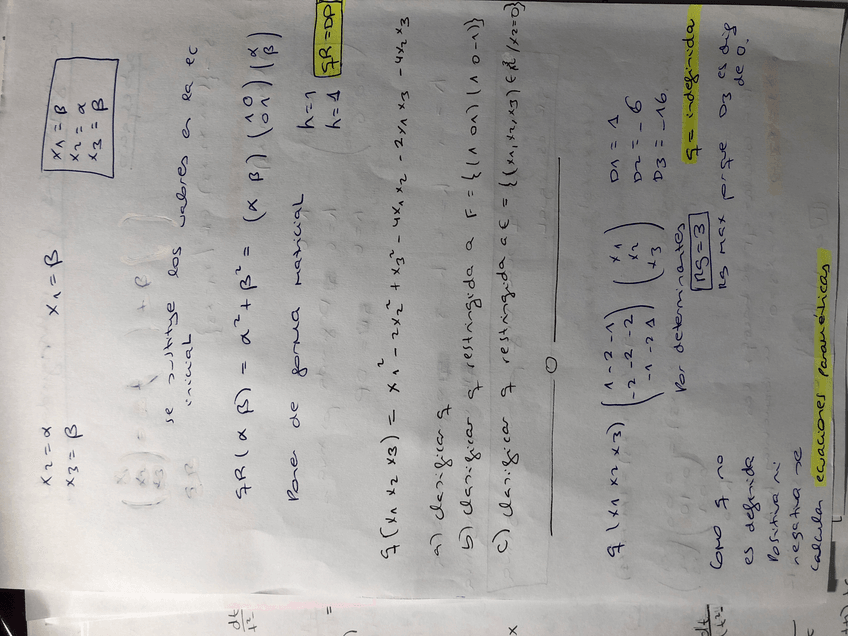 x2 = α
x3 = β
x1 = β
x1 = β
x2 = α
x3 = β
se sustituye los valores en la ec
inicial
qR (α β) = α² + β² = (α β) (1 0 0 1) (α β)
Poner de forma matricial
h=1
h=1
qR = DP
q (x1 x2 x3) = x1² - 2x2² + x3² - 4x1 x2 - 2x1 x3 - 4x2 x3
a) clasificar q
b) clasificar q restringida a F = {(1 0 1) (1 0 -1)}
c) clasificar q restringida a E = {(x1, x2, x3) ∈ R³ / x2=0}
q (x1 x2 x3) (1 -2 -1 -2 -2 -2 -1 -2 1) (x1 x2 x3)
D1 = 1
D2 = -6
D3 = -16
Por determinantes
q = indefinida
RG = 3
RG max porque D3 es dif
de 0.
Como q no
es definida
Positiva ni
negativa se
calculan ecuaciones paramétricas
dt
t²
=
x
dt
t²